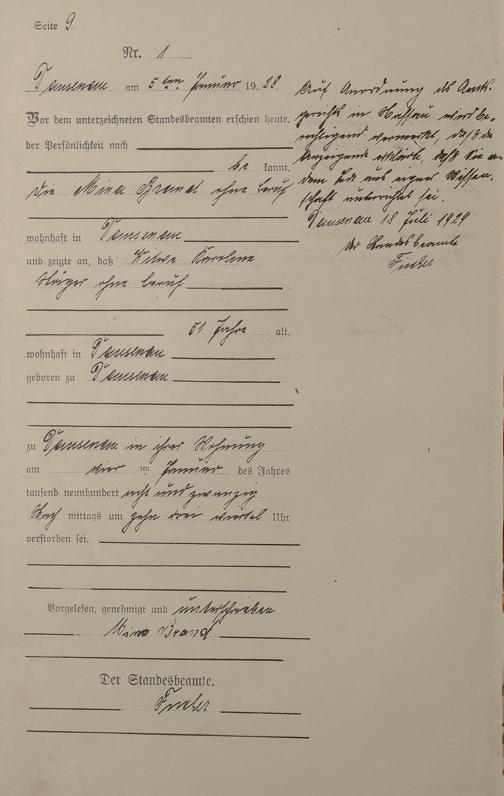 Seite 9.
Nr. 1
Dausenau am 5ten Januar 1928.
Vor dem unterzeichneten Standesbeamten erschien heute,
der Persönlichkeit nach
be kannt,
die Mina Brand ohne Beruf
wohnhaft in Dausenau
und zeigte an, daß Witwe Karoline
ohne Beruf
51 Jahre alt,
wohnhaft in Dausenau
geboren zu Dausenau
zu Dausenau in ihrer Wohnung
am vier ten Januar des Jahres
tausend neunhundert acht und zwanzig
Nach mittags um zehn drei viertel Uhr
verstorben sei.
Vorgelesen, genehmigt und unterschrieben
Mina Brand
Der Standesbeamte.
Auf Anordnung des Amts-
gerichts in Nassau wird be-
richtigend vermerkt, daß die
Anzeigende erklärte, daß sie von
dem Tode aus eigner Wissen-
schaft unterrichtet sei.
Dausenau 18 Juli 1929
Der Standesbeamte